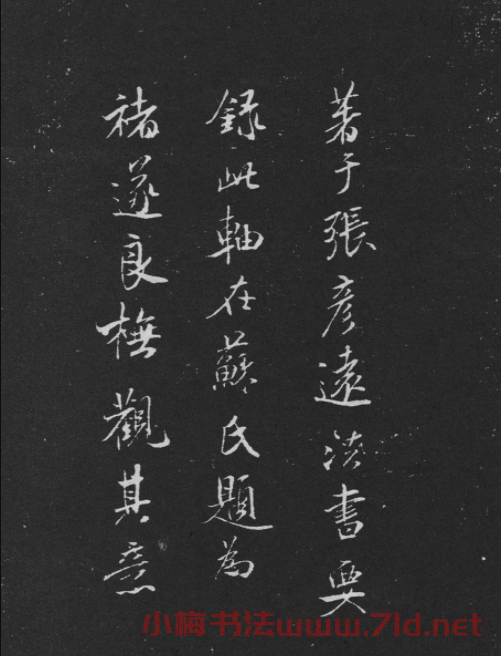 著于張彥遠法書要
錄此軸在蘇氏題為
褚遂良橅觀其意
小梅书法www.7ld.net